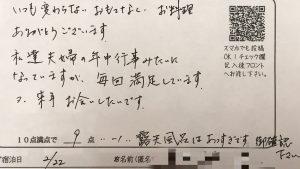 いつも変わらない おもてなし、お料理
ありがとうございます
私達夫婦の年中行事みたいに
なっていますが、毎回満足しています。
又、来年 お会いしたいです。
スマホでも投稿
OK！チェック欄
記入後フロント
へお渡し下さい。
10点満点で 9 点 … -1 露天風呂はあつすぎます 御確認
下さい
宿泊日 2/22 お名前(匿名